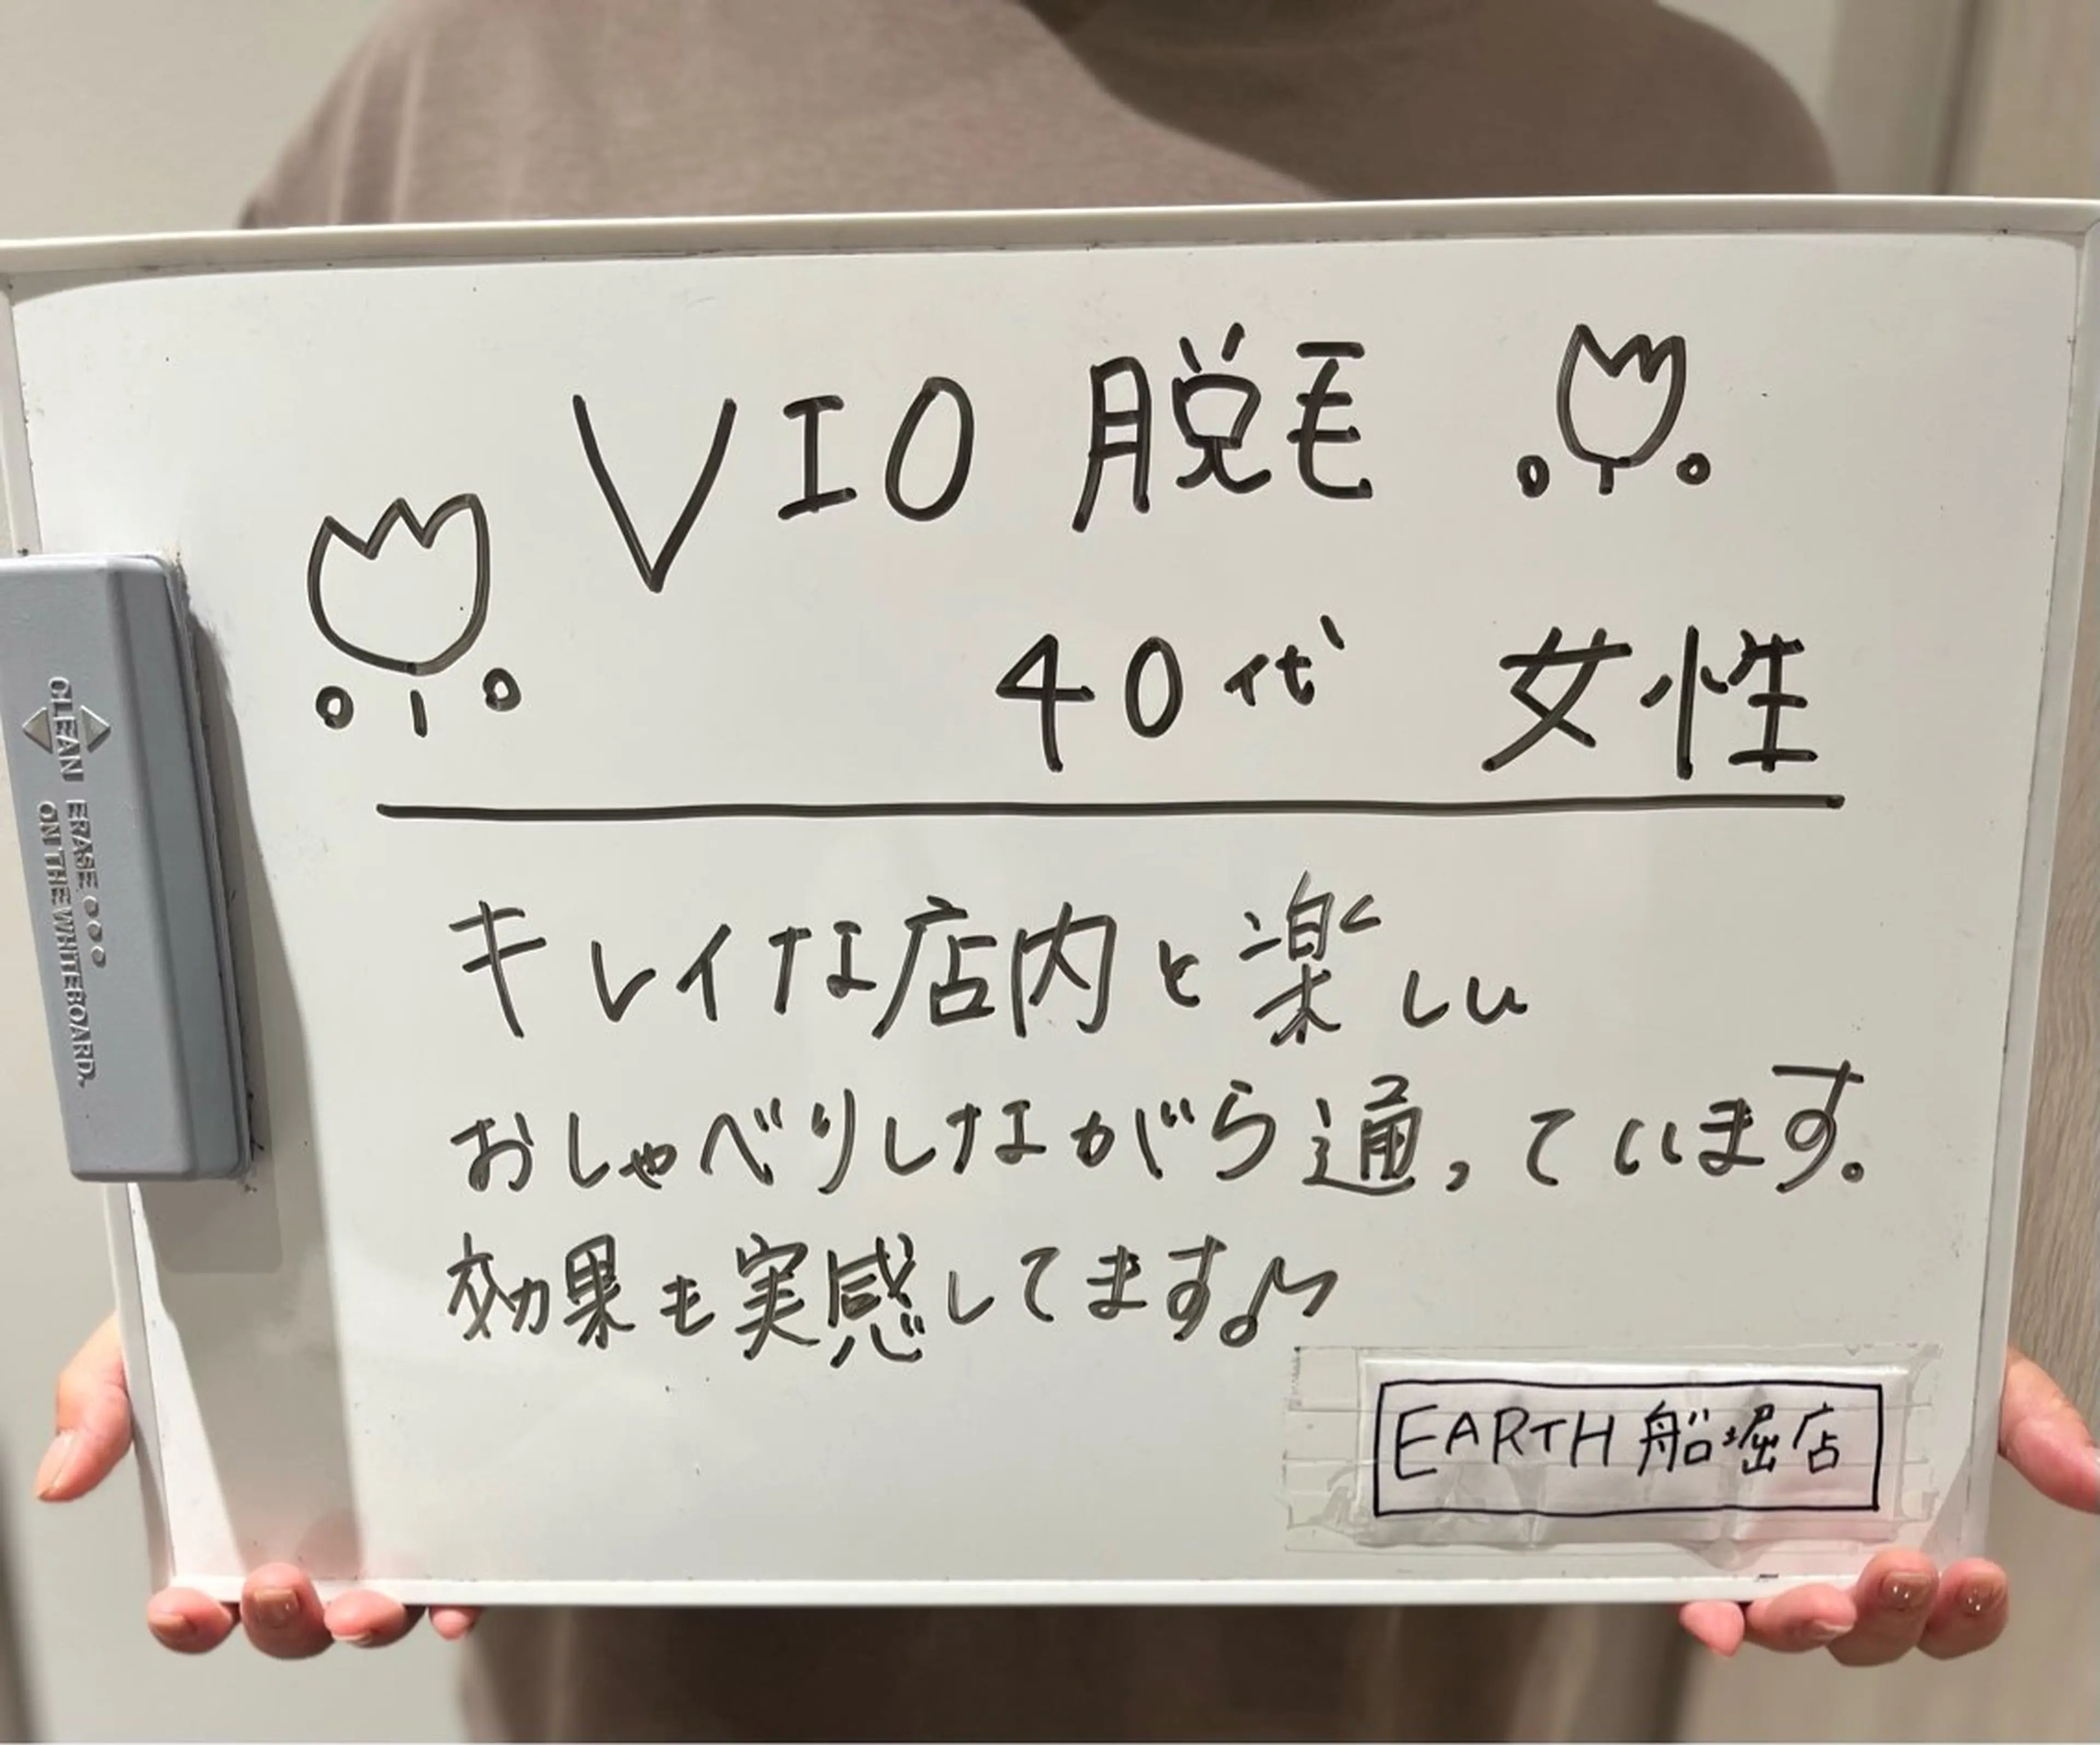 VIO 脱毛
40代 女性
キレイな店内と楽しい
おしゃべりしながら通っています。
効果も実感してます♪
EARTH 船堀店
CLEAN ERASE
ON THE WHITEBOARD.